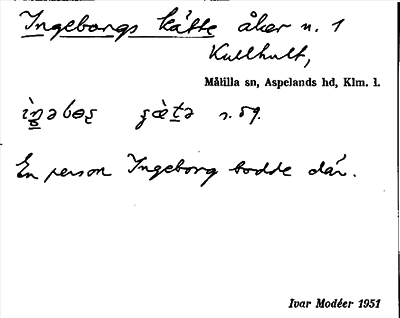 Ingeborgs kätte åker n. 1
Kullhult,
Målilla sn, Aspelands hd, Klm. l.
s. 59.
En person Ingeborg bodde där.
Ivar Modéer 1951